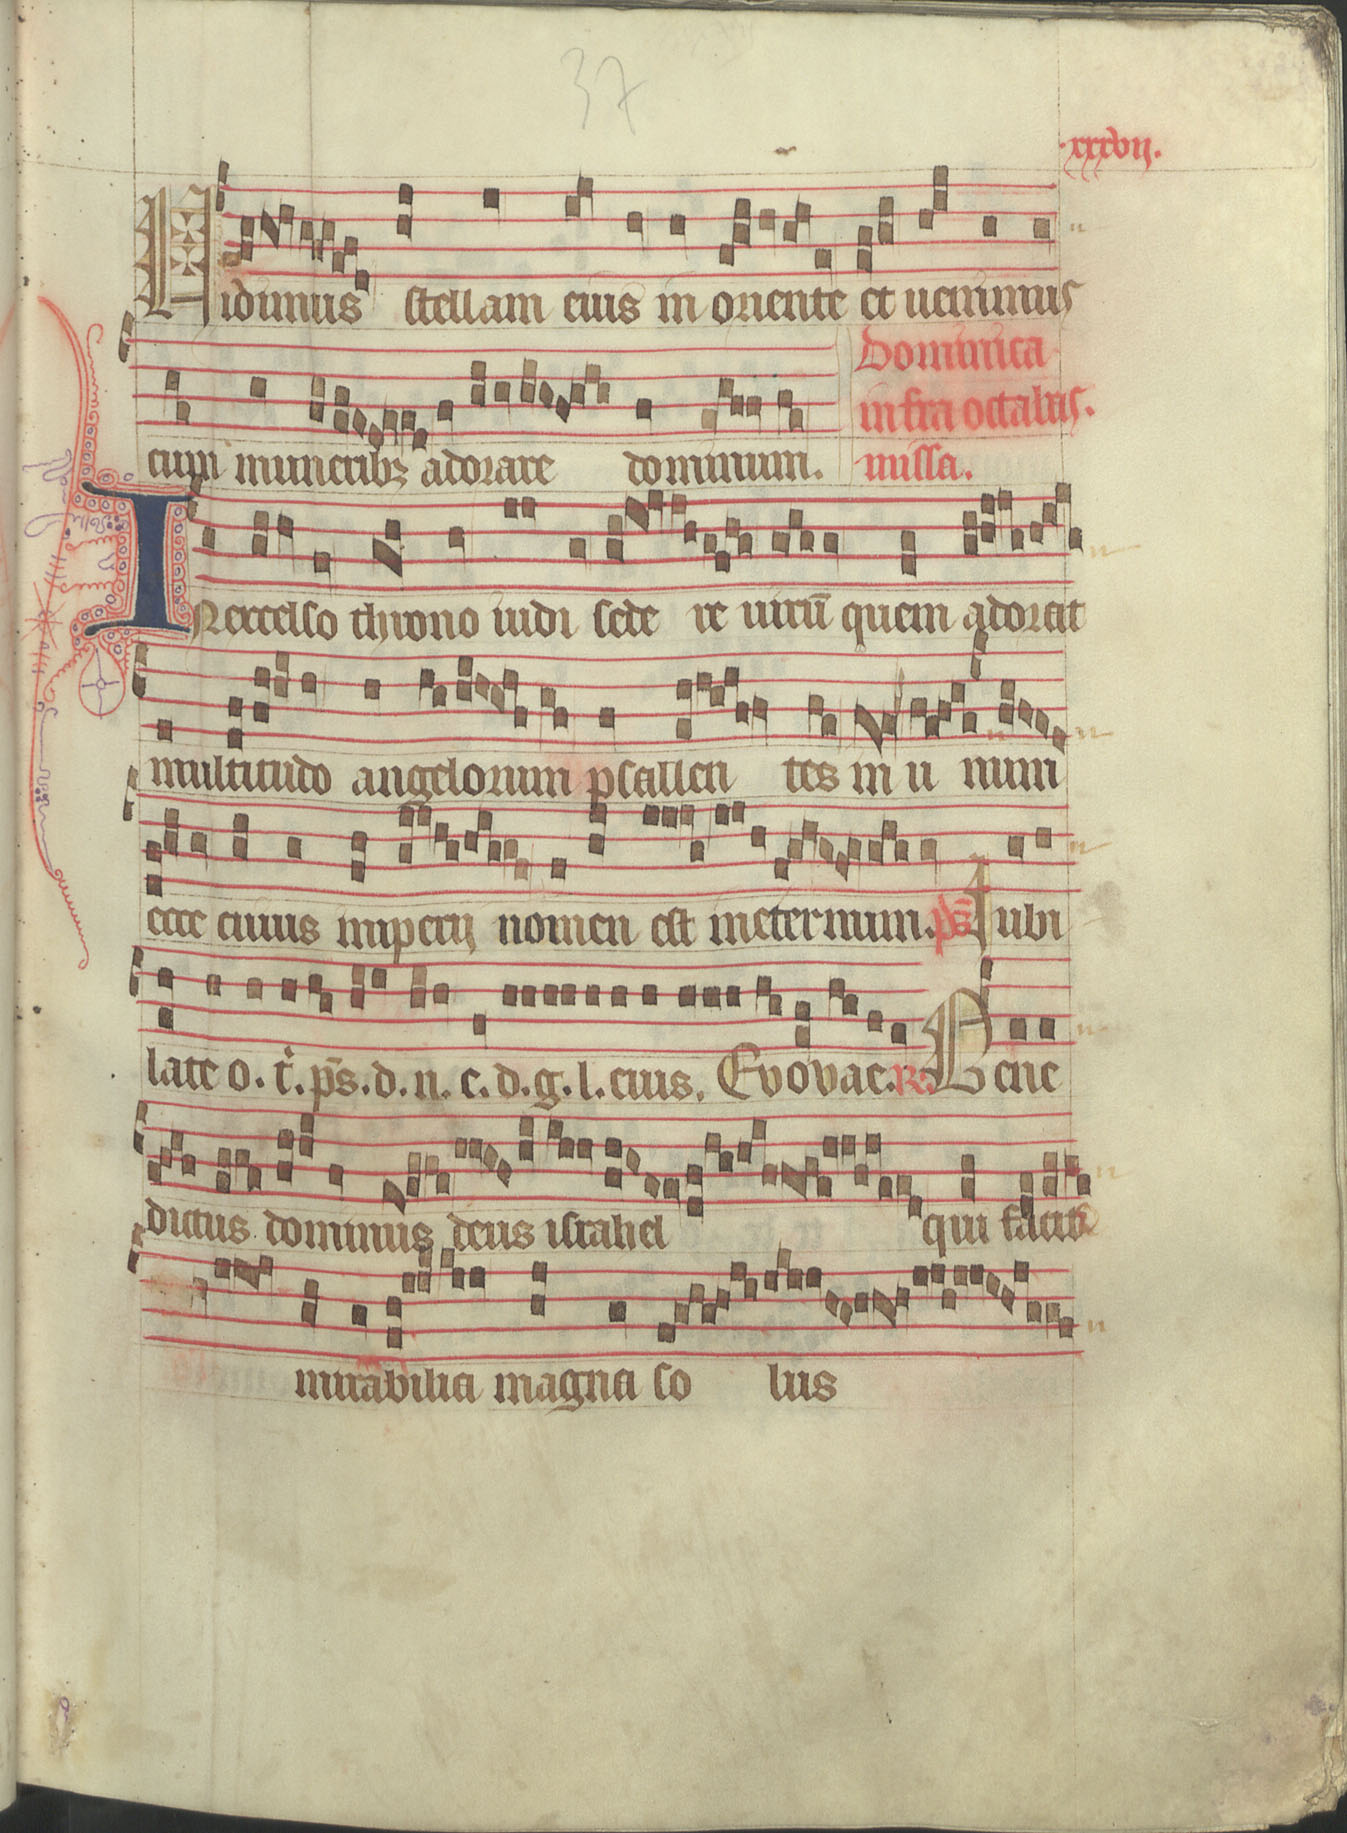 37
.xxxvij.
Vidimus stellam eius in oriente et uenimus
Dominica
infra octabas.
cum muneribꝫ adorare dominum. missa.
IN excelso throno uidi sede re uirū quem adorat
multitudo angelorum psallen tes in u num
ecce cuius imperij nomen est ineternum. ps̄ Iubi
late o. t̄. ps̄. d. n. c. d. g. l. eius. Evovae. R. Bene
dictus dominus deus israhel qui facit
mirabilia magna so lus